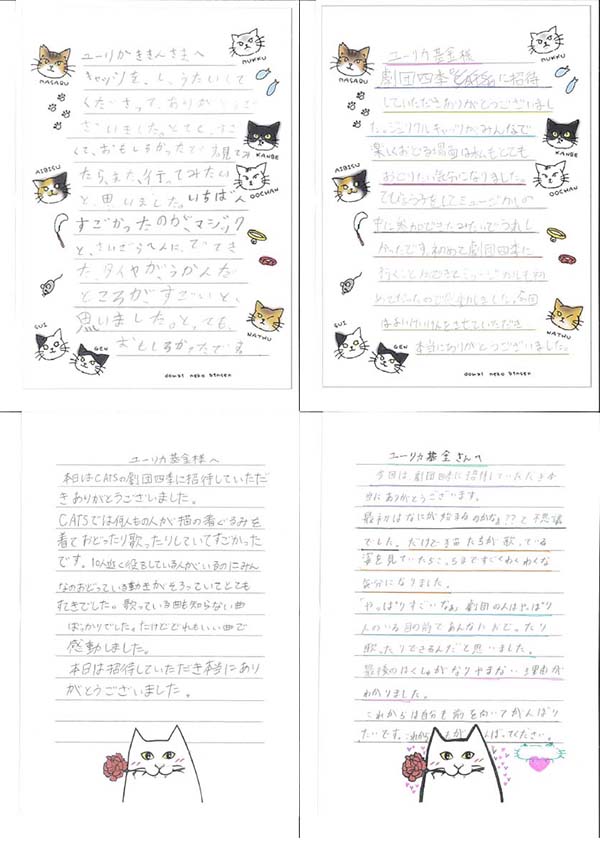 ユーリかききんさまへ
キャッツを、しょうたいして
くださって、ありがとうご
ざいました。とても、すご
くて、おもしろかったです。見てみ
たら、また、行ってみたい
と、思いました。いちばん
すごかったのが、マジック
と、さいごらへんに、でてき
た、タイヤが、うかんだ
ところが、すごいと、
思いました。とっても、
おもしろかったです。
MASARU
MUKKU
KANBE
AIBISU
OOCHAN
NATHU
GUI
GEN
oowai neko binsen
ユーリカ基金様
劇団四季 CATSに招待
していただきありがとうございまし
た。ジェリクルキャッツがみんなで
楽しくおどる場面は私もとても
おどりたい気分になりました。
てびょうしをしてミュージカルの
中に参加できたみたいでうれし
かったです。初めて劇団四季に
行くことができてミュージカルも初
めてだったので感動しました。今回
はよいけいけんをさせていただき
本当にありがとうございました。
MASARU
MUKKU
KANBE
AIBISU
OOCHAN
NATHU
GUI
GEN
oowai neko binsen
ユーリカ基金様へ
本日はCATSの劇団四季に招待していただ
きありがとうございました。
CATSでは何人もの人が猫の着ぐるみを
着ておどったり歌ったりしていてすごかった
です。10人近く役をしている人がいるのにみん
なのおどっている動きがそろっていてとても
すてきでした。歌っている曲も知らない曲
ばっかりでした。だけどどれもいい曲で
感動しました。
本日は招待していただき本当にあり
がとうございました。
ユーリカ基金さんへ
今回は、劇団四季に招待していただき本
当にありがとうございます。
最初はなにが始まるのかなぁ??と不思議
でした。だけど猫たちが歌っている
姿を見ていたらこっちまですごくわくわくな
気分になりました。
「やっぱりすごいなぁ」劇団の人はやっぱり
人のいる目の前であんなにおどったり
歌ったりできるんだと思いました。
最後のはくしゅがなりやまない理由が
わかりました。
これからは自分も前を向いてがんばり
たいです。これからもがんばってください。